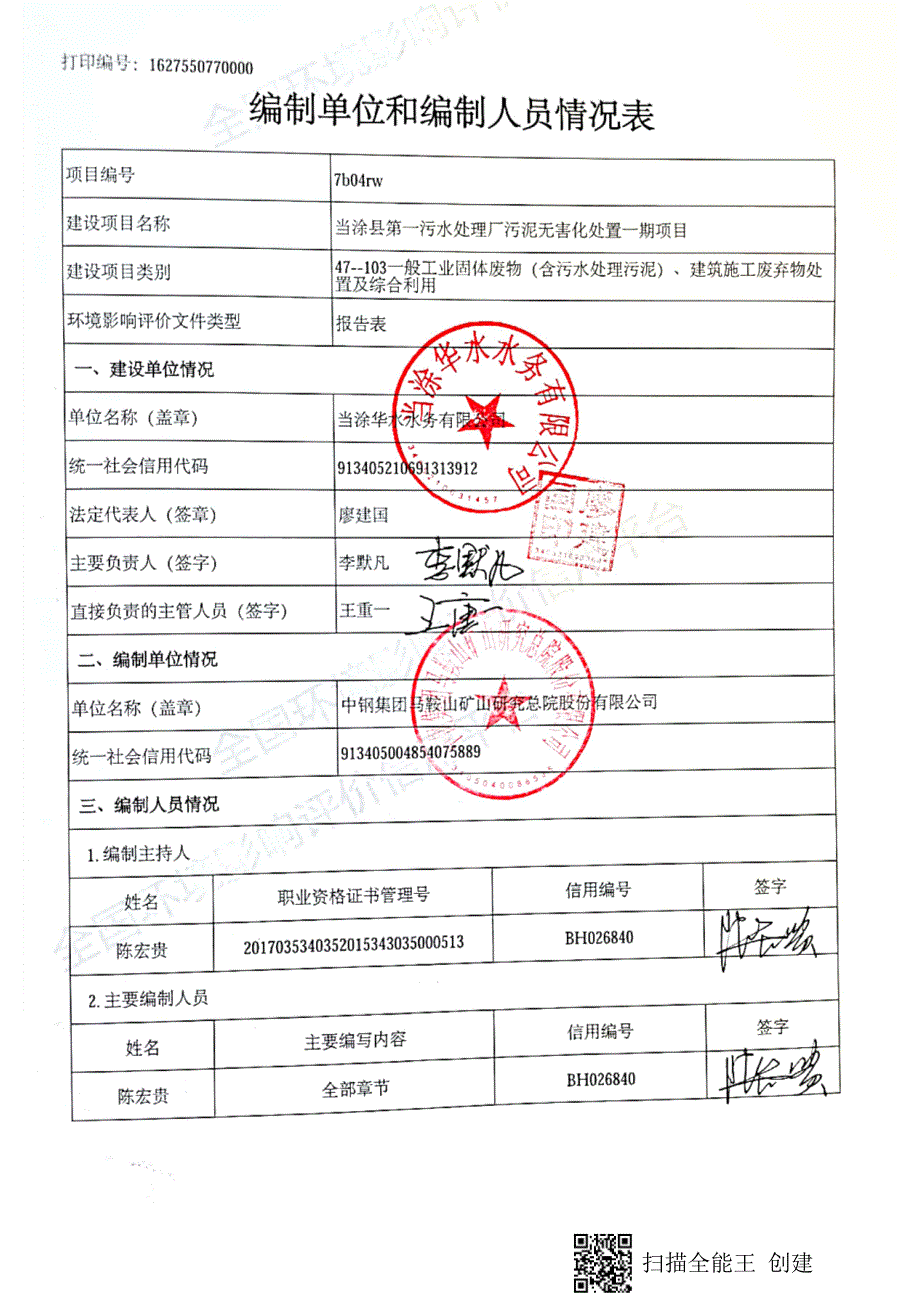 打印编号: 1627550770000
编制单位和编制人员情况表
项目编号 7b04rw
建设项目名称 当涂县第一污水处理厂污泥无害化处置一期项目
建设项目类别 47--103一般工业固体废物（含污水处理污泥）、建筑施工废弃物处
置及综合利用
环境影响评价文件类型 报告表
一、建设单位情况
单位名称（盖章） 当涂华水水务有限公司
当涂华水水务有限公司
统一社会信用代码 913405210691313912
法定代表人（签章） 廖建国
主要负责人（签字） 李默凡 李默凡
直接负责的主管人员（签字） 王重一 王重一
二、编制单位情况
单位名称（盖章） 中钢集团马鞍山矿山研究总院股份有限公司
统一社会信用代码 913405004854075889
三、编制人员情况
1.编制主持人
姓名 职业资格证书管理号 信用编号 签字
陈宏贵 2017035340352015343035000513 BH026840 陈宏贵
2.主要编制人员
姓名 主要编写内容 信用编号 签字
陈宏贵 全部章节 BH026840 陈宏贵
全国环境影响评价信用平台
扫描全能王 创建